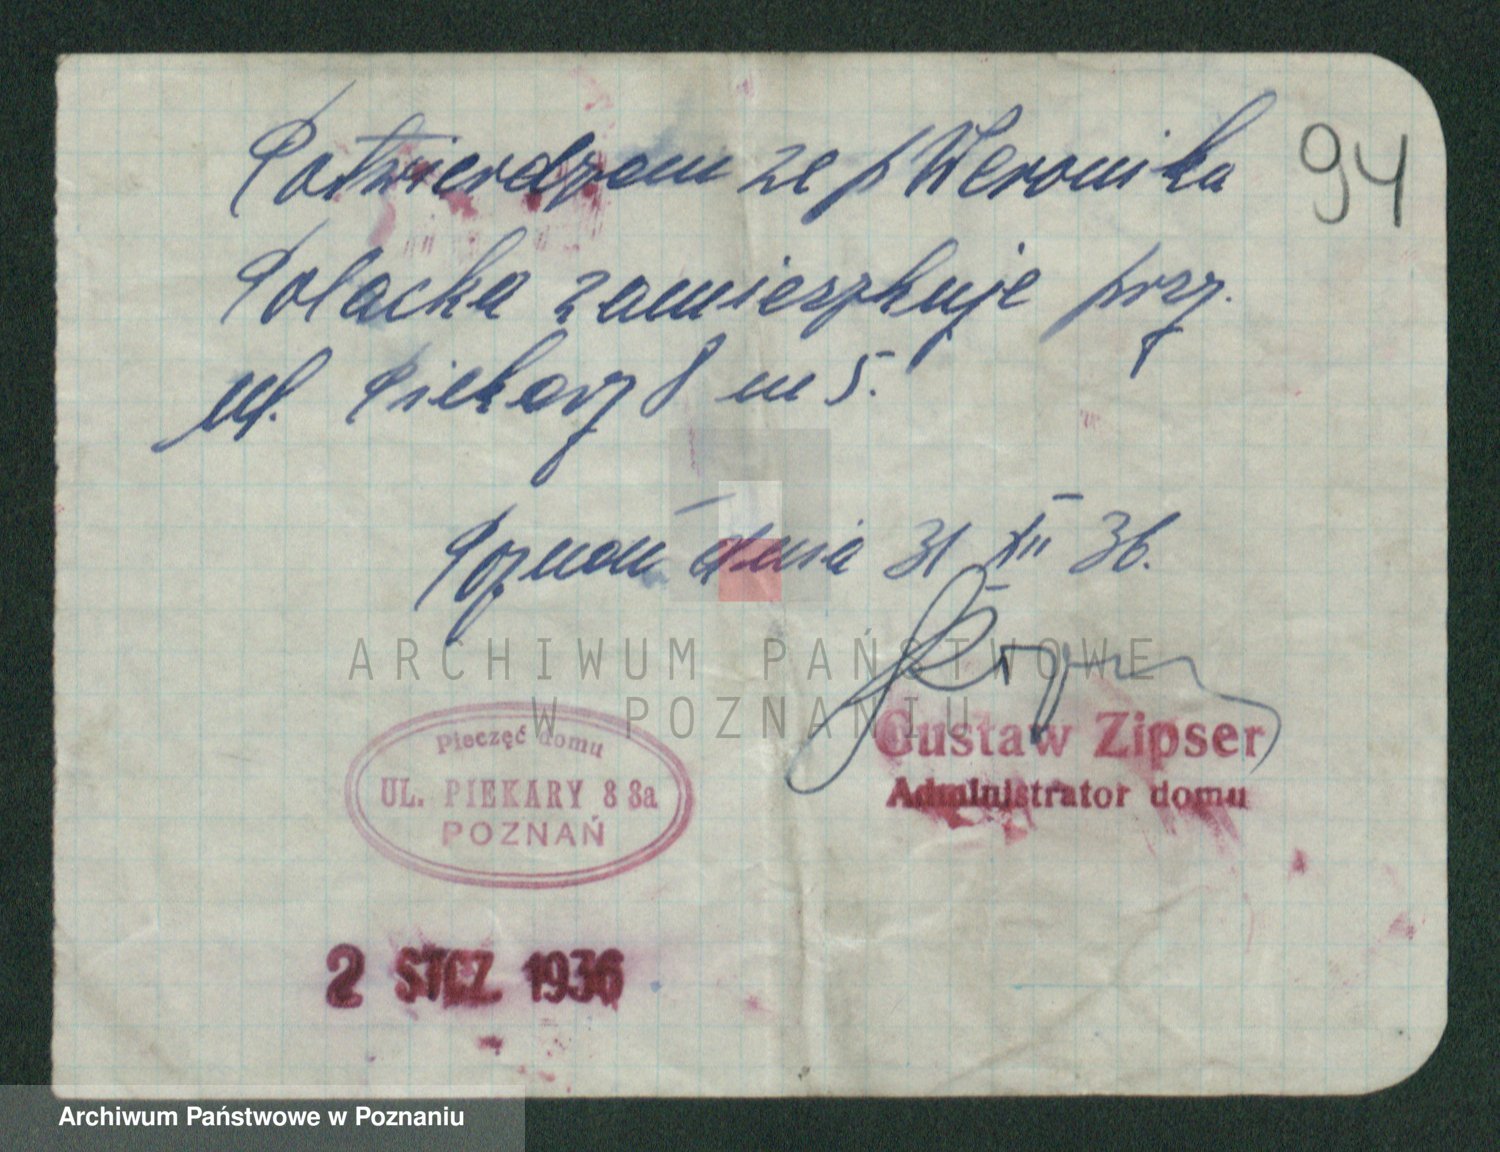 Potwierdzam ze p Weronika
94
Polacka zamieszkuje przy.
ul. Piekary 8 m 5.
Poznań dnia 31 XII 36.
ARCHIWUM PAŃSTWOWE
W POZNANIU
Gustaw Zipser
Administrator domu
Pieczęć domu
UL. PIEKARY 8 8a
POZNAŃ
2 STCZ 1936
Archiwum Państwowe w Poznaniu